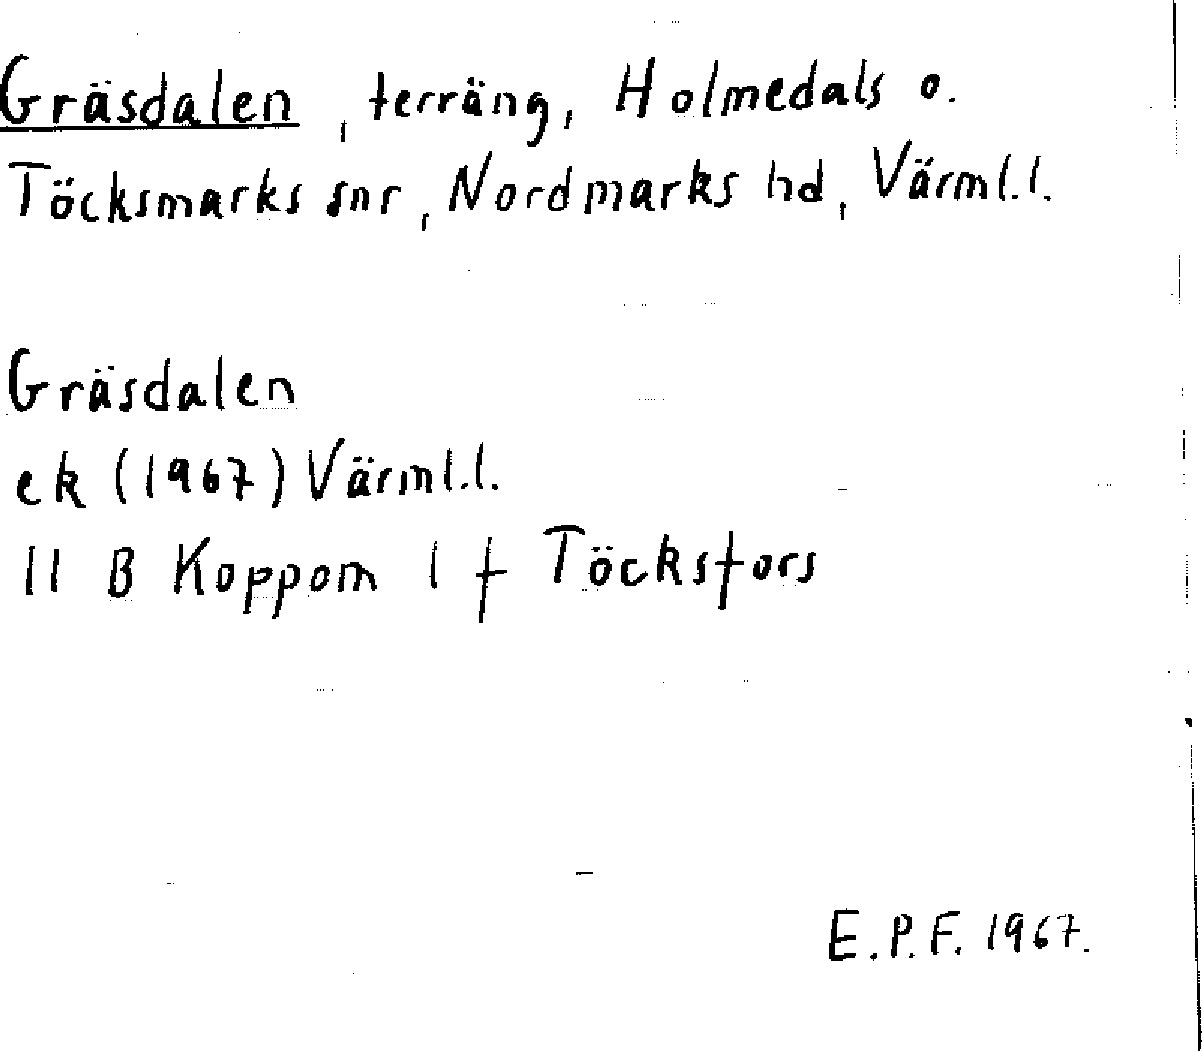 Gräsdalen, terräng, Holmedals o.
Töcksmarks snr, Nordmarks hd, Värml.l.
Gräsdalen
ek (1967) Värml.l.
11 B Koppom 1 f Töcksfors
E.P.F. 1967.